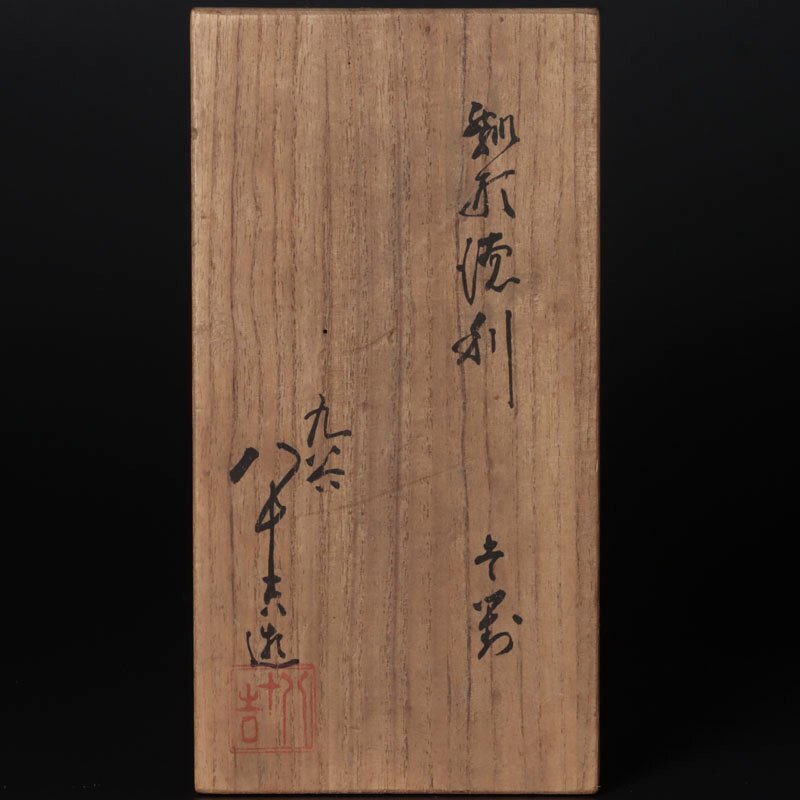 瓢形徳利
壱對
九谷
八十吉造
八十吉